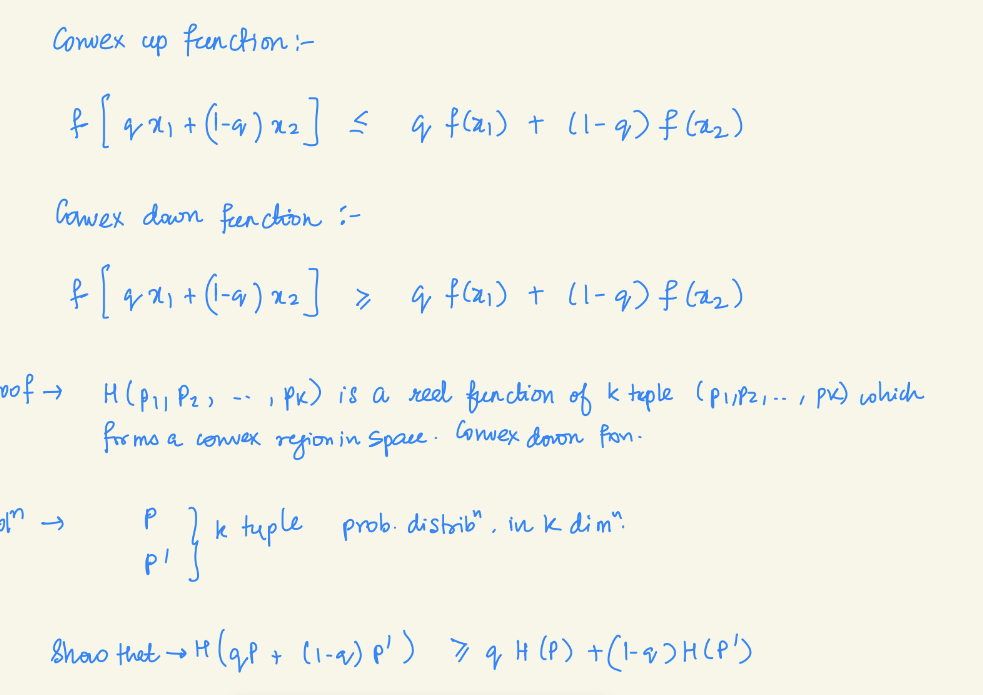 Convex up function :-
f [ q x₁ + (1-q) x₂ ] ≤ q f(x₁) + (1-q) f(x₂)
Convex down function :-
f [ q x₁ + (1-q) x₂ ] ≥ q f(x₁) + (1-q) f(x₂)
oof → H(p₁, p₂, ..., pₖ) is a real function of k tuple (p₁, p₂, .., pₖ) which
forms a convex region in space. Convex down fxn.
olⁿ → P } k tuple prob. distribⁿ. in k dimⁿ.
P'
Show that → H(qP + (1-q) P') ≥ q H(P) + (1-q) H(P')